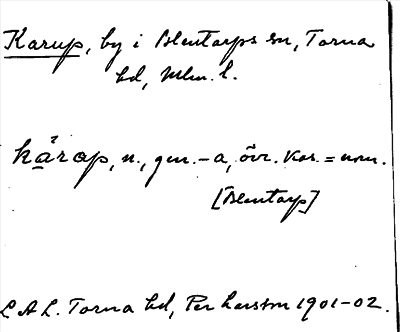 Karup, by i Blentarps sn, Torna
hd, Mlm. l.
kārap, n., gen. -a, övr. kas. = nom.
[Blentarp]
L A L. Torna hd, Per Larsson 1901-02.